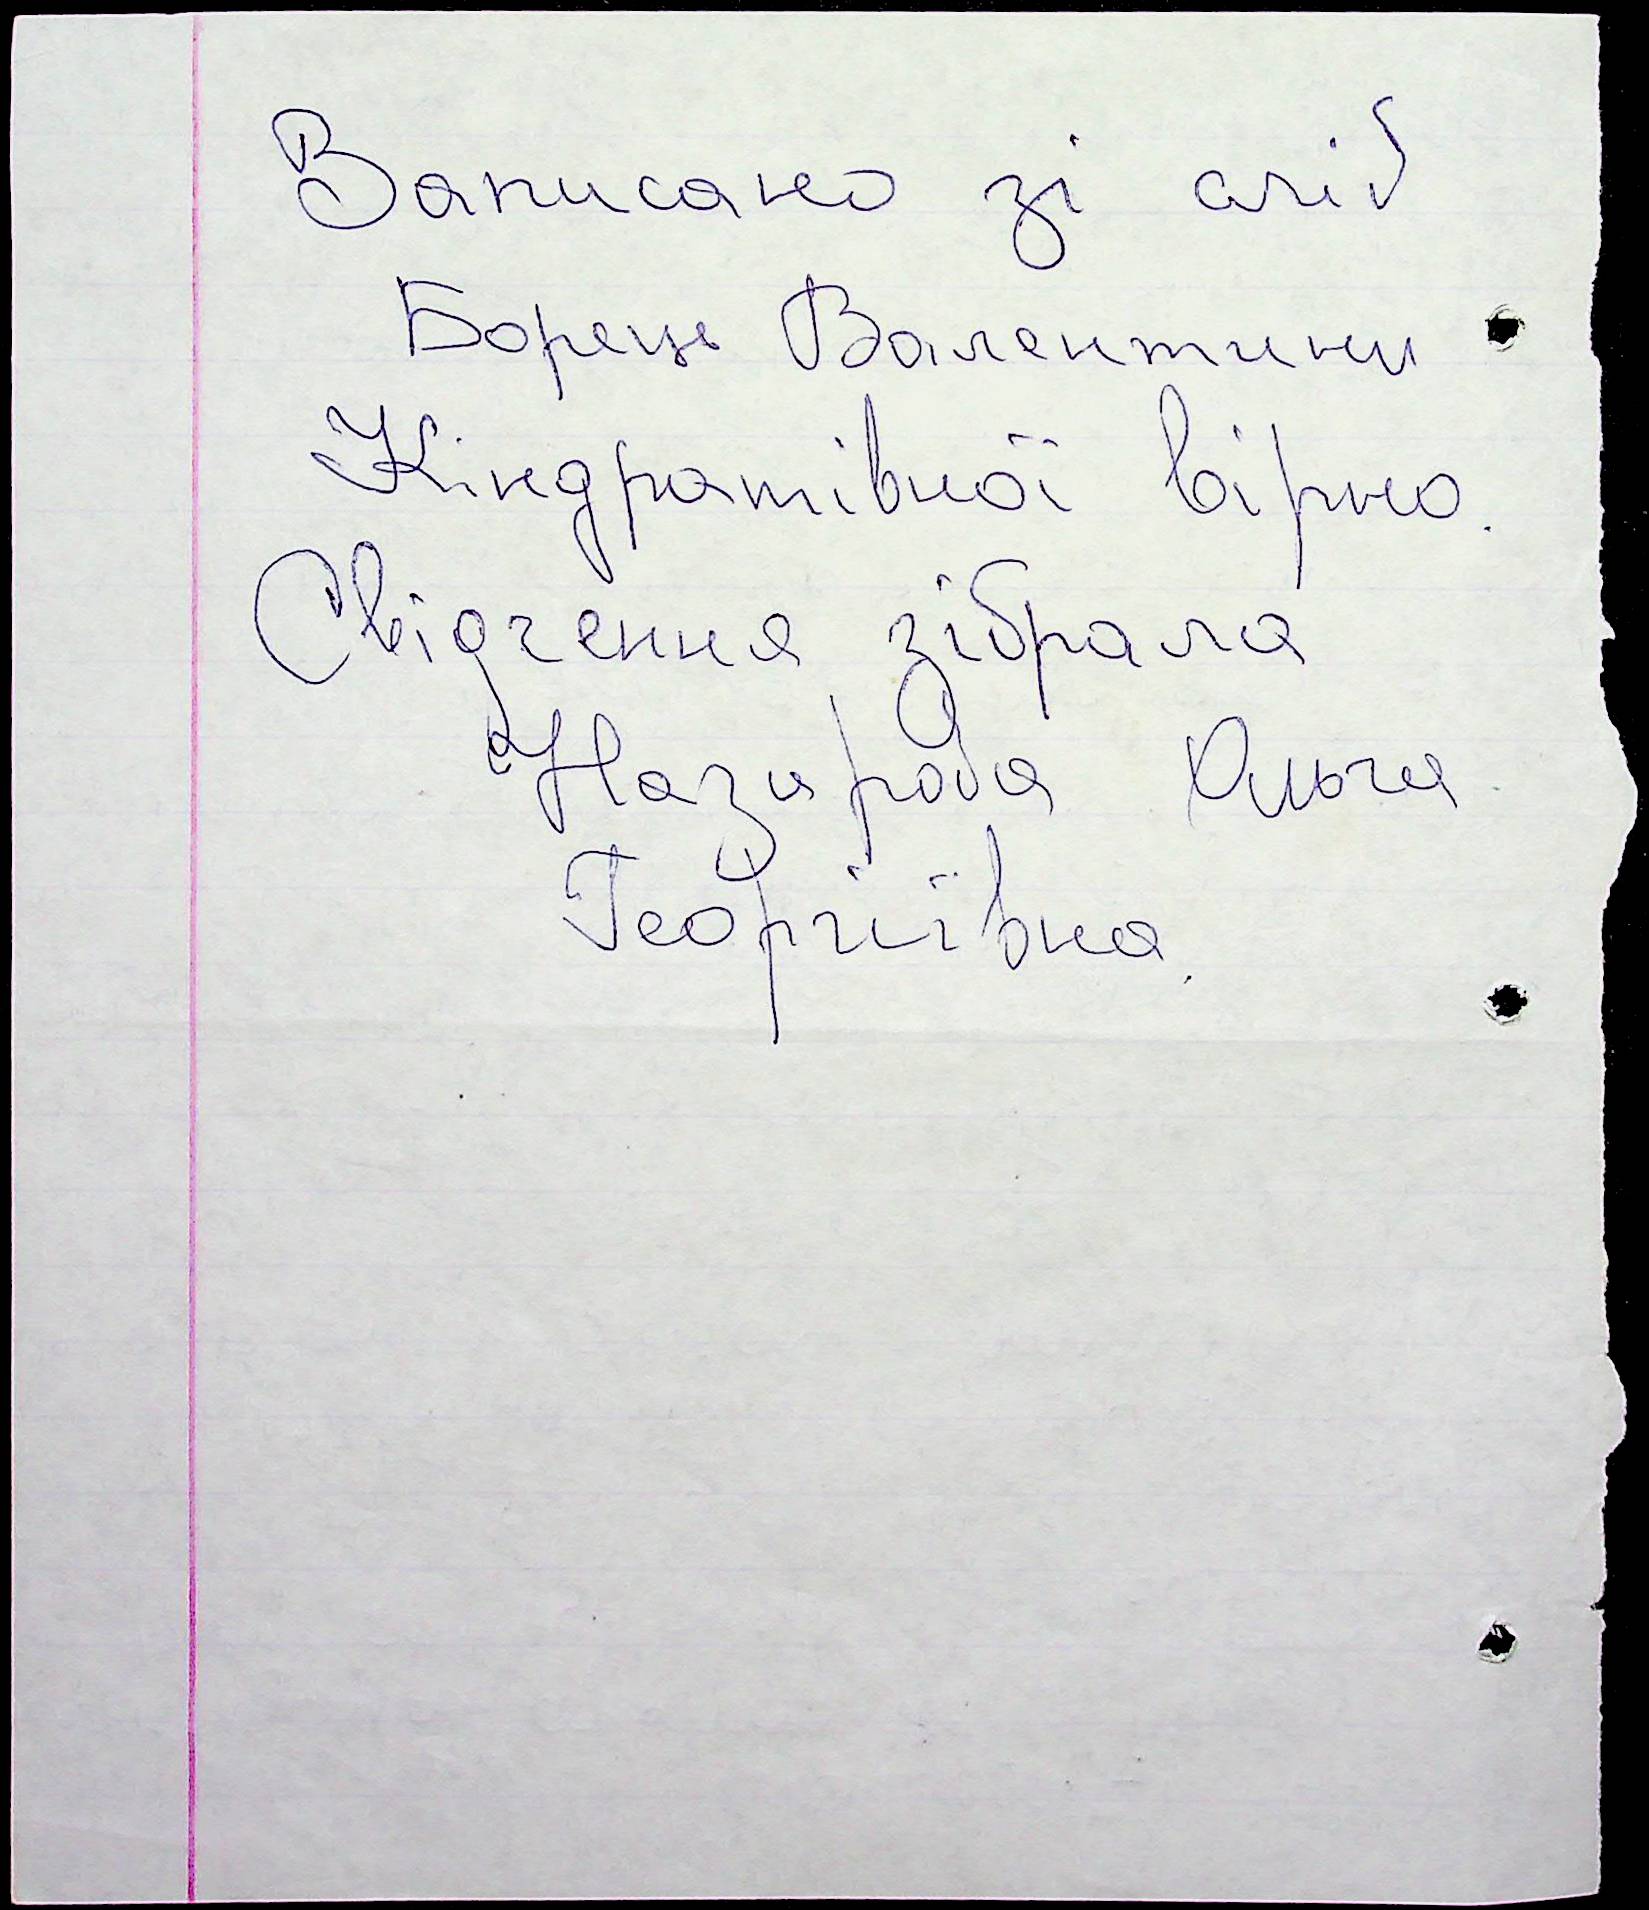 Записано зі слів
Борець Валентини
Кіндратівної вірно.
Свідчення зібрала
Назарова Ольга
Георгіївна.